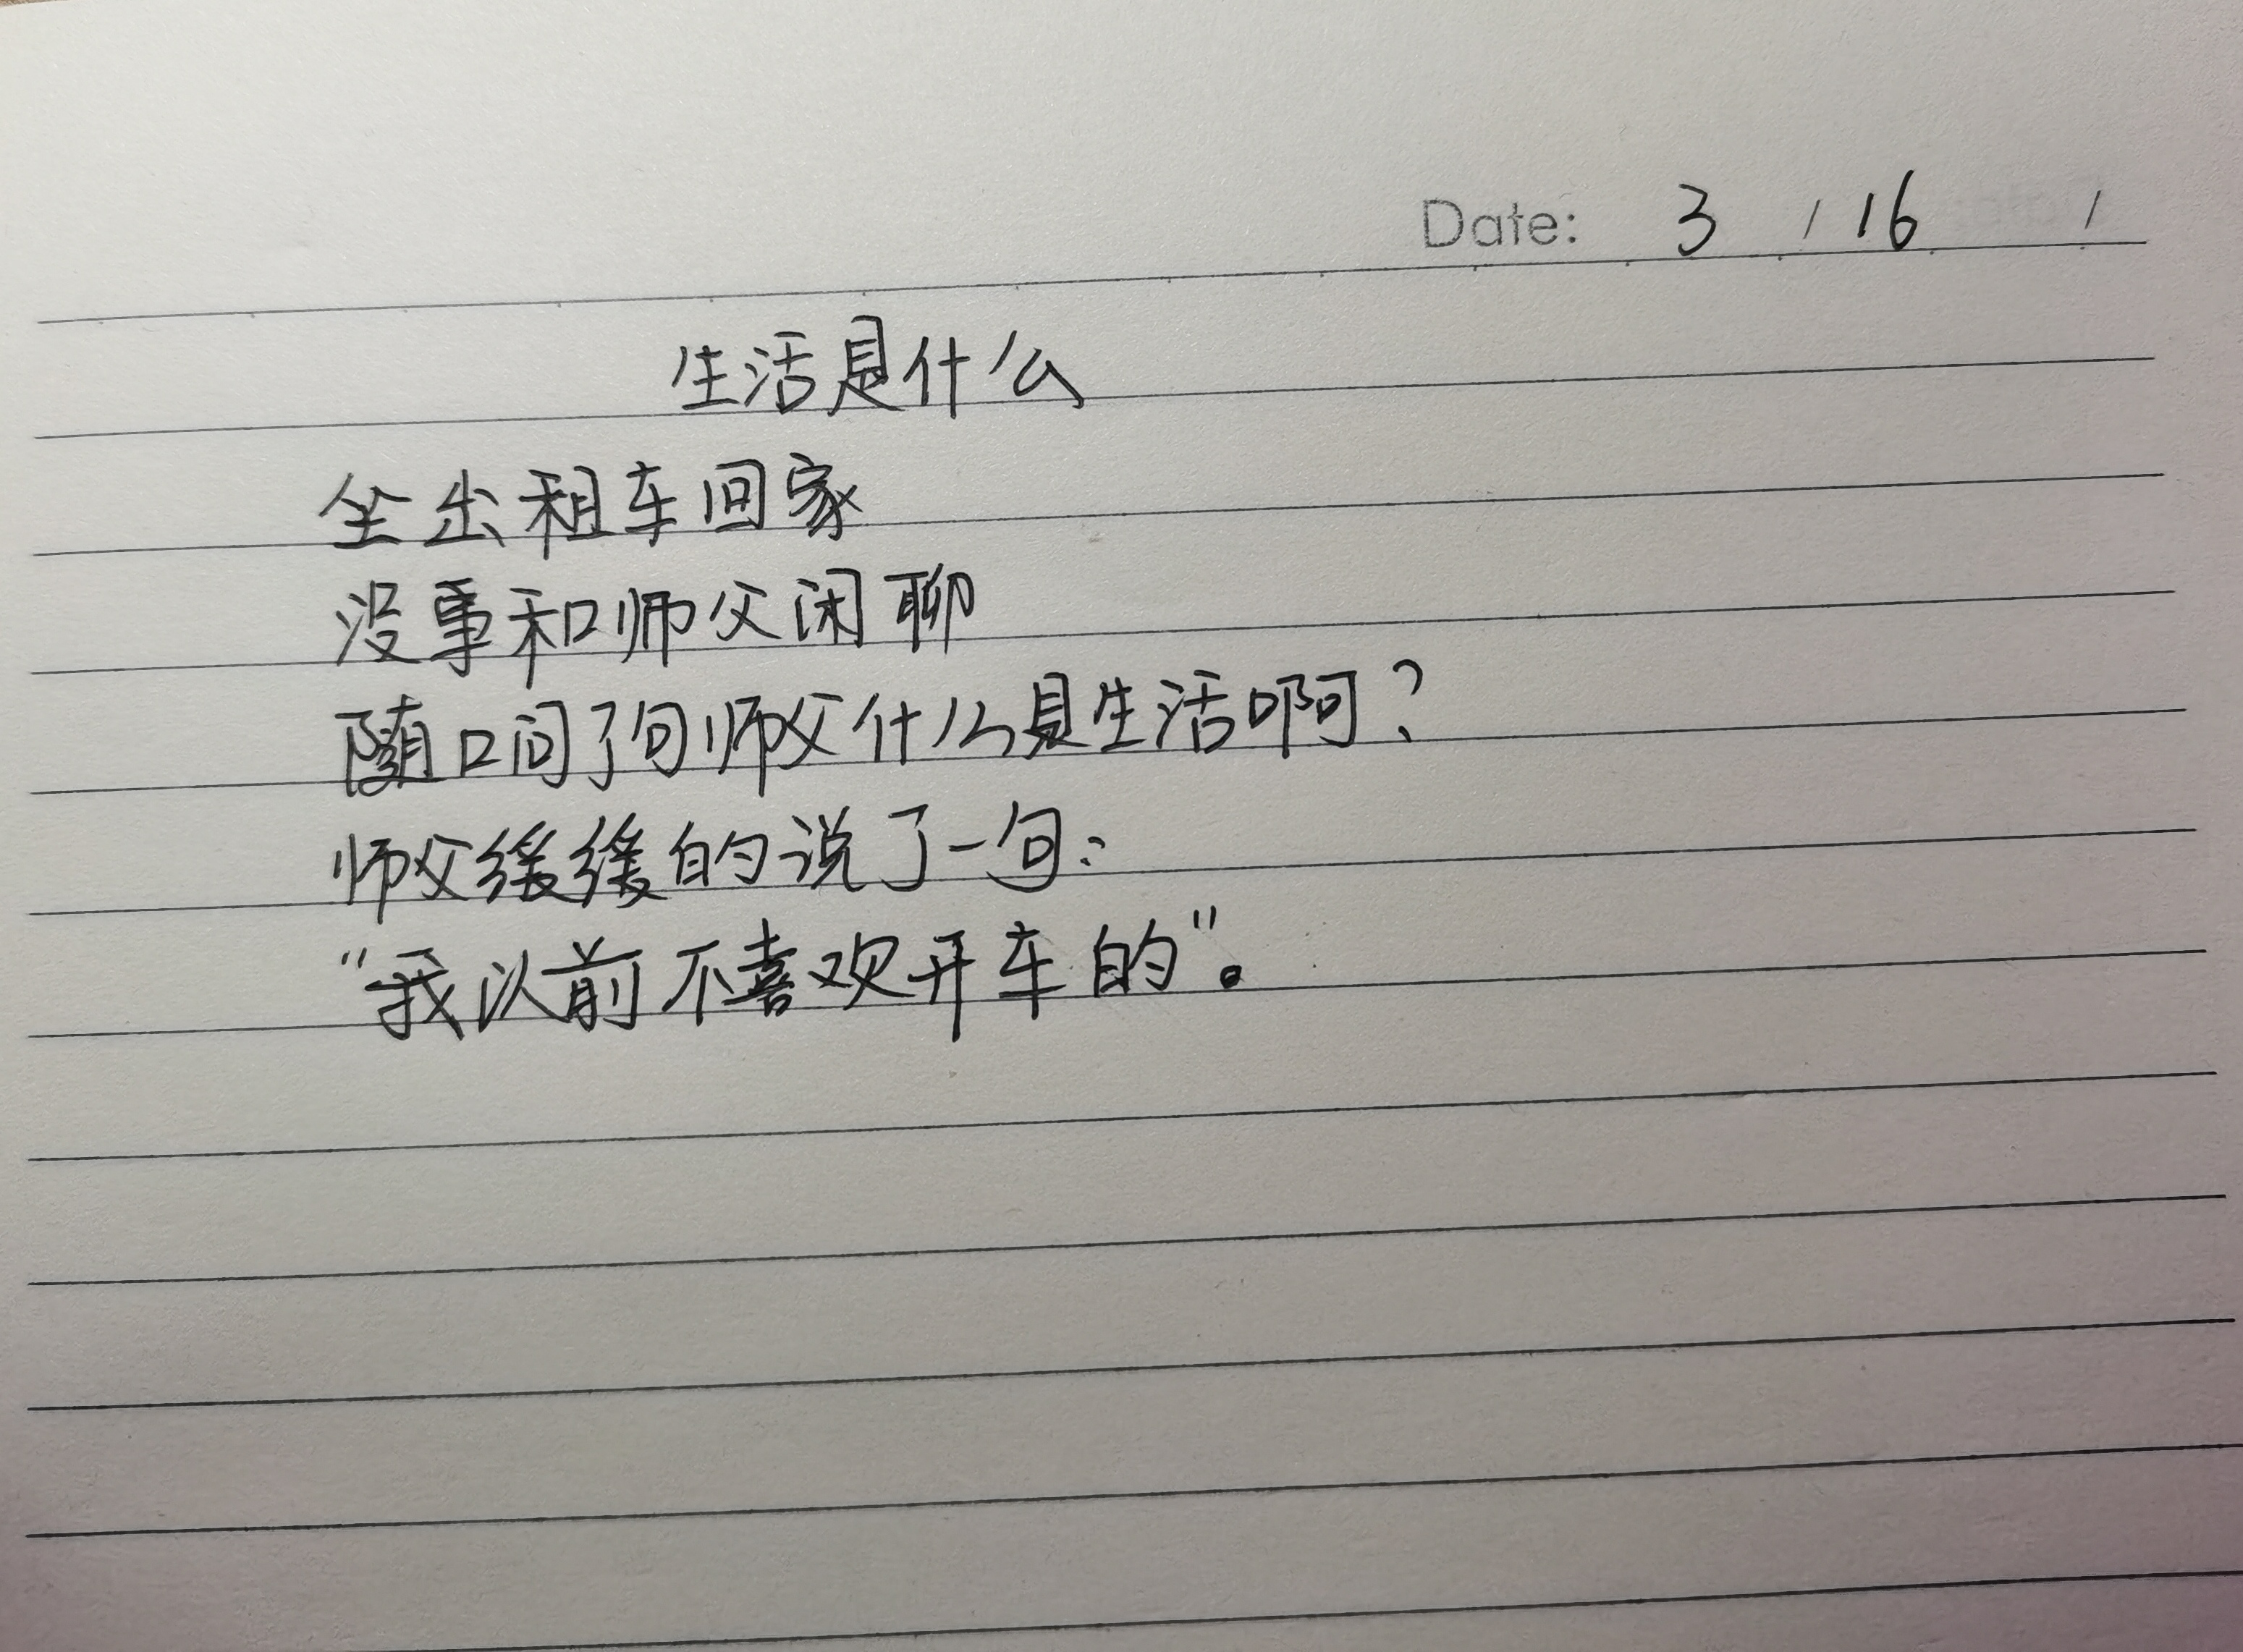 Date: 3 / 16 /
生活是什么
坐出租车回家
没事和师父闲聊
随口问了句师父什么是生活啊?
师父缓缓的说了一句:
"我以前不喜欢开车的"。